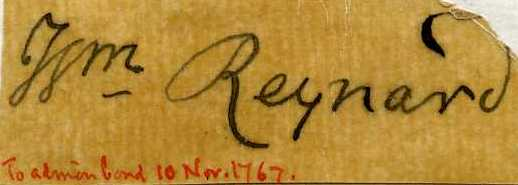 Wm Reynard
To admion bond 10 Nov. 1767.